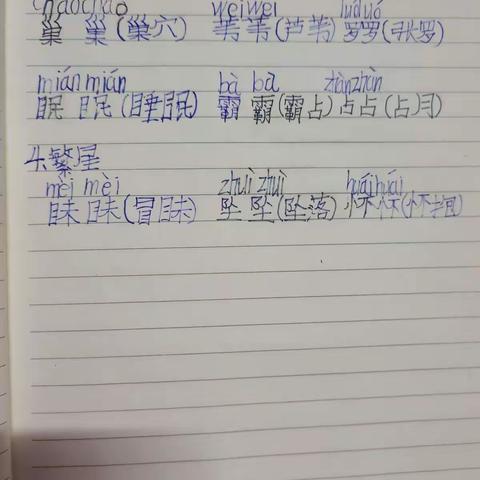 cháo cháo wěi wěi luó luó
巢 巢(巢穴) 苇 苇(芦苇) 罗罗(张罗)
mián mián bà bà zhàn zhàn
眠 眠(睡眠) 霸 霸(霸占) 占占(占月)
4繁星
mèi mèi zhuì zhuì huái huái
昧 昧(冒昧) 坠 坠(坠落) 怀怀(怀抱)